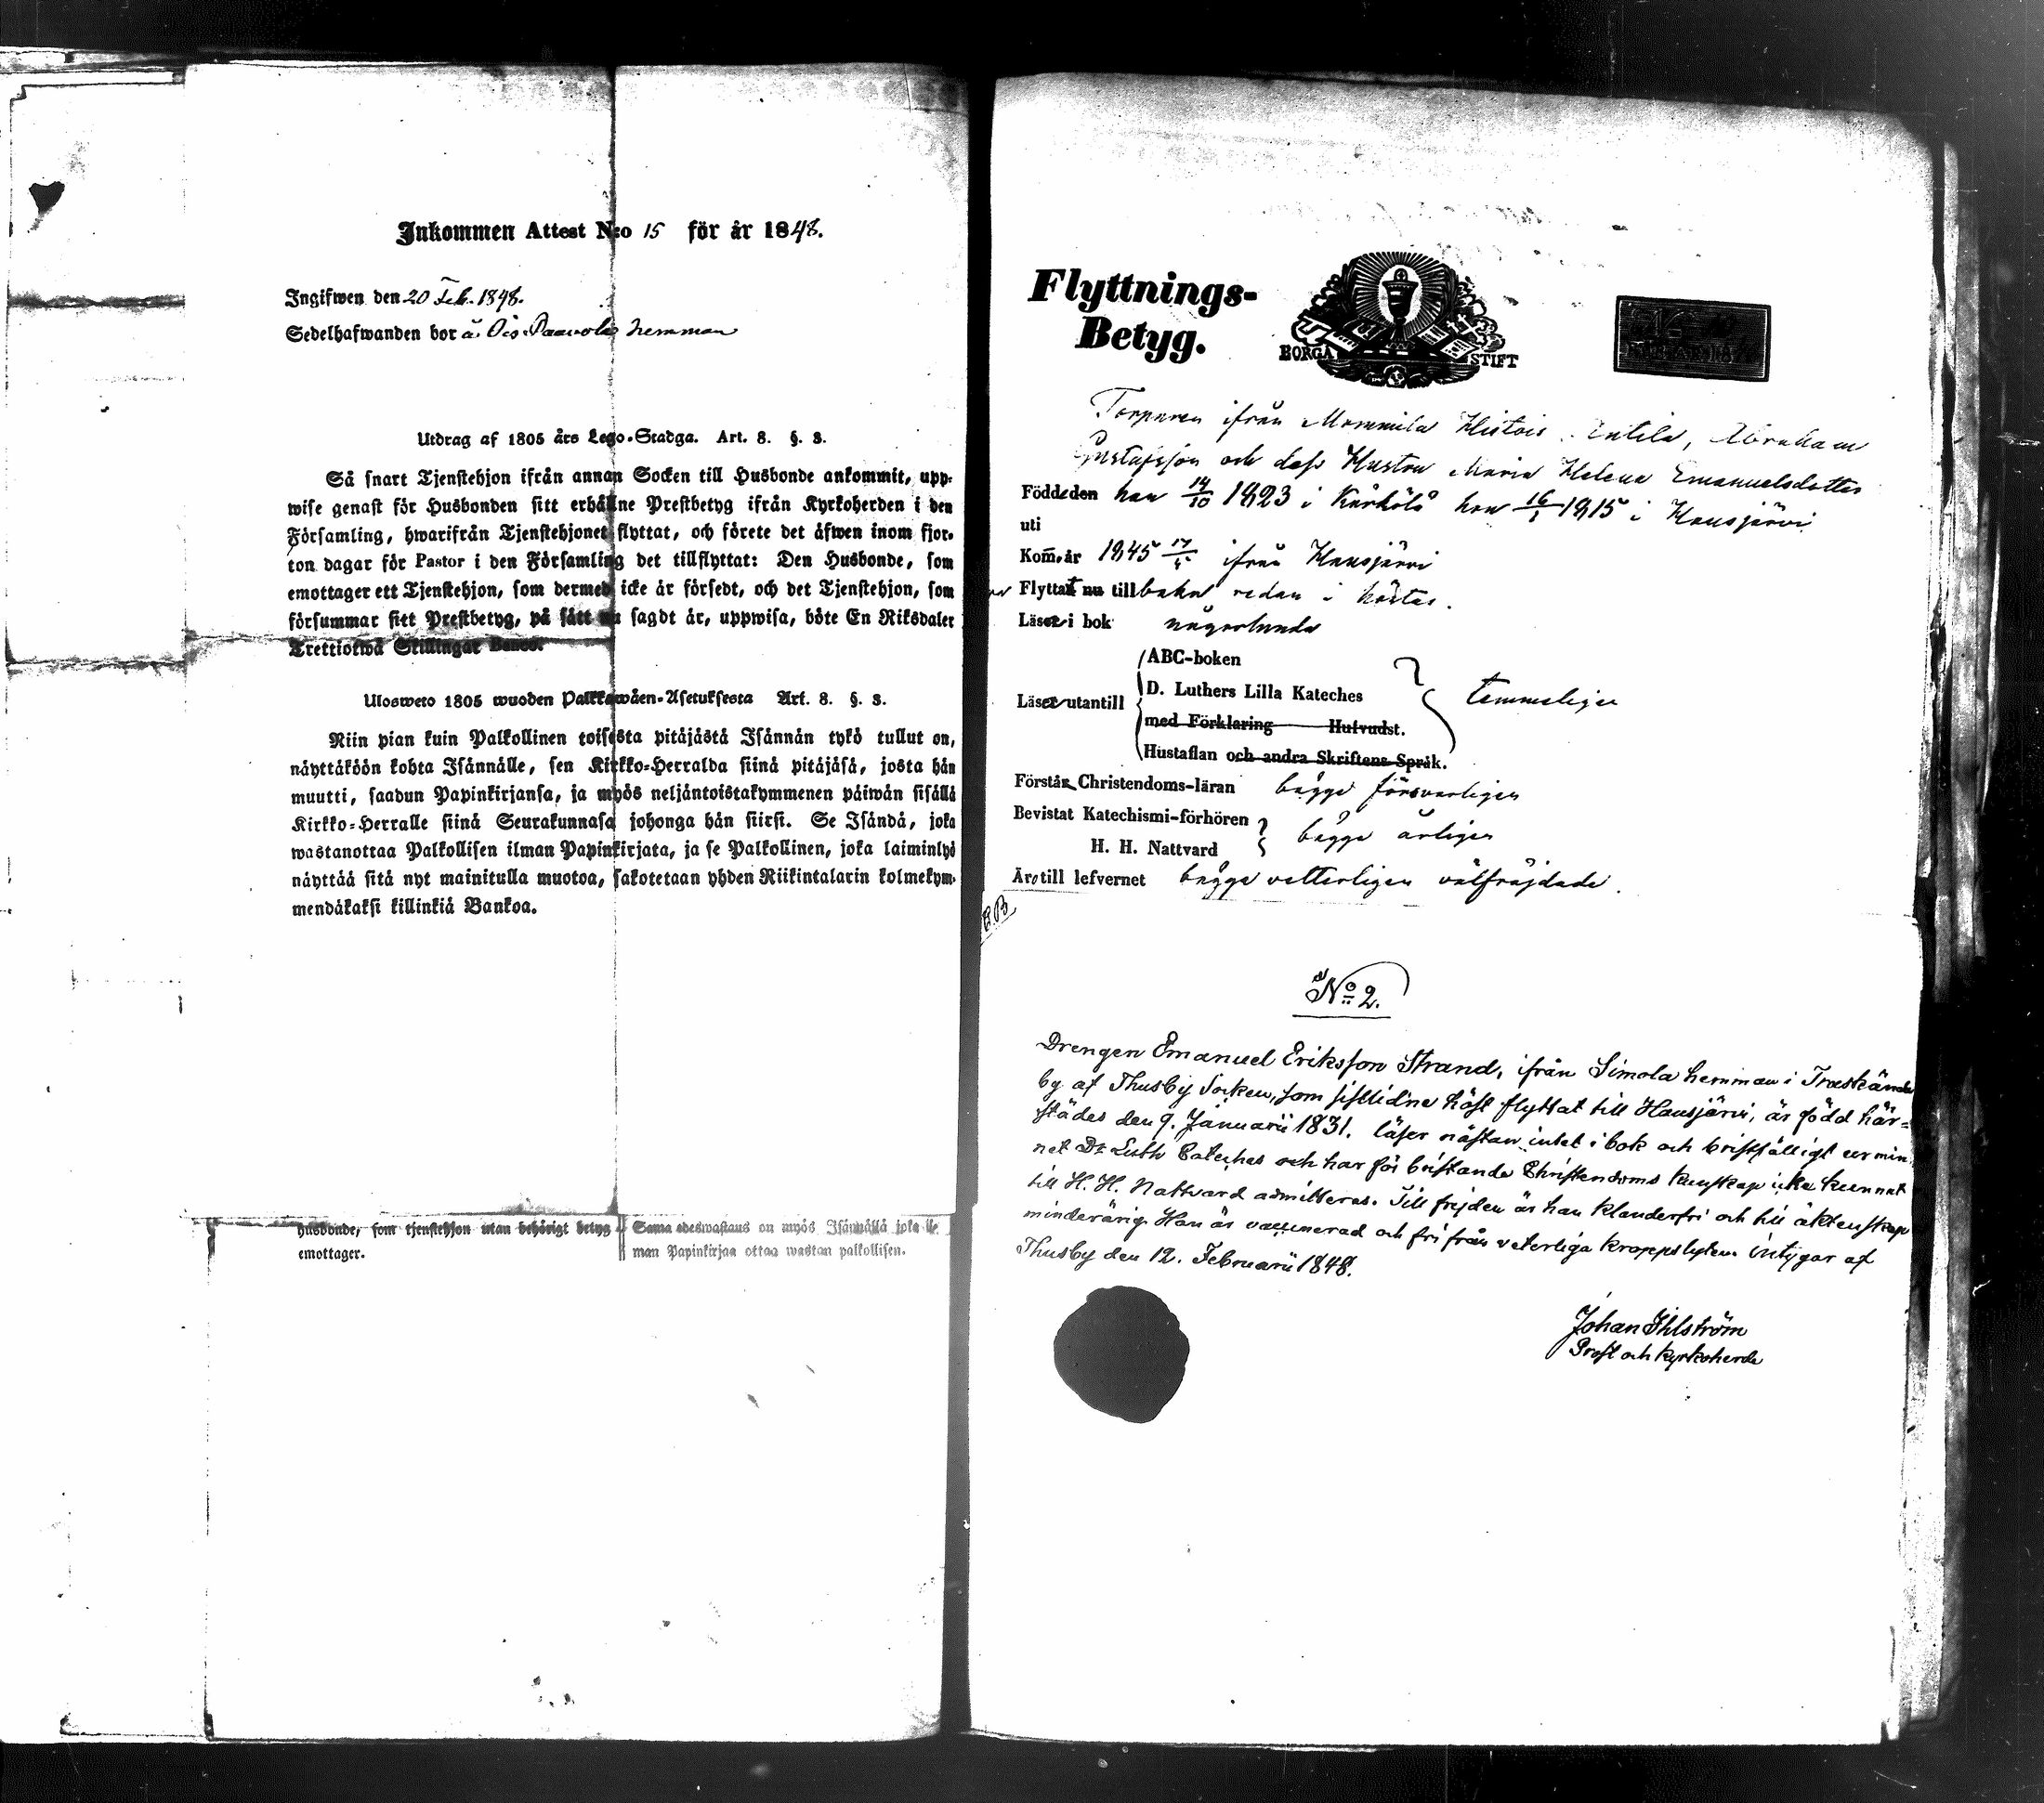 Inkommen Attest N:o 15 för år 1848.
Ingifwen den 20 Feb. 1848.
Sedelhafwanden bor å Ois Paavola hemman
Utdrag af 1805 års Lego-Stadga. Art. 8. §. 3.
Så snart Tjenstehjon ifrån annan Socken till Husbonde ankommit, upp-
wise genast för Husbonden sitt erhållne Prestbetyg ifrån Kyrkoherden i den
Församling, hwarifrån Tjenstehjonet flyttat, och förete det äfwen inom fjor-
ton dagar för Pastor i den Församling det tillflyttat: Den Husbonde, som
emottager ett Tjenstehjon, som dermed icke är försedt, och det Tjenstehjon, som
försummar sitt Prestbetyg, på sätt nu sagdt är, uppwisa, böte En Riksdaler
Trettiotwå Skillingar Banco.
Ulosweto 1805 wuoden Palkkawäen-Asetuksesta Art. 8. §. 3.
Niin pian kuin Palkollinen toisesta pitäjästä Isännän tykö tullut on,
näyttäköön kohta Isännälle, sen Kirkko-Herralda siinä pitäjäsä, josta hän
muutti, saadun Papinkirjansa, ja myös neljäntoistakymmenen päiwän sisällä
Kirkko-Herralle siinä Seurakunnasa johonga hän siirsi. Se Isändä, joka
wastanottaa Palkollisen ilman Papinkirjata, ja se Palkollinen, joka laiminlyö
näyttää sitä nyt mainitulla muotoa, sakotetaan yhden Riikintalarin kolmekym-
mendäkaksi killinkiä Bankoa.
husbonde, som tjenstehjon utan behörigt betyg
emottager.
Sama edeswastaus on myös Isännällä joka il-
man Papinkirjaa ottaa wastan palkollisen.
Flyttnings-
Betyg.
BORGÅ STIFT
Torparen ifrån Mommila Hietois Entila, Abraham
Gustafsson och dess Hustru Maria Helena Emanuelsdotter
Född den han 14/10 1823 i Kärkölä hon 16/1 1815 i Hausjärvi
uti
Kom. år 1845 17/4 ifrån Hausjärvi
Flyttat nu till baka redan i höstas.
Läser i bok någorlunda
Läser utantill
ABC-boken
D. Luthers Lilla Kateches
med Förklaring Hufvudst.
Hustaflan och andra Skriftens Språk.
temmeligen
Förstår Christendoms-läran bägge försvarligen
Bevistat Katechismi-förhören
H. H. Nattvard
bägge årligen
Är till lefvernet bägge vetterligen välfräjdade.
No 2.
Drengen Emanuel Eriksson Strand, ifrån Simola hemman i Träskända
by af Thusby Socken, som sistlidne höst flyttat till Hausjärvi, är född här=
städes den 9. Januarii 1831. läser nästan intet i bok och bristfälligt ur min-
net Dr Luth Cateches och har för bristande Christendoms kunskap icke kunnat
till H. H. Nattvard admitteras. Till frejden är han klanderfri och till äktenskap
minderårig. Han är vaccinerad och fri från veterliga kroppslyten. Intygar af
Thusby den 12. Februarii 1848.
Johan Ihlström
Prost och kyrkoherde